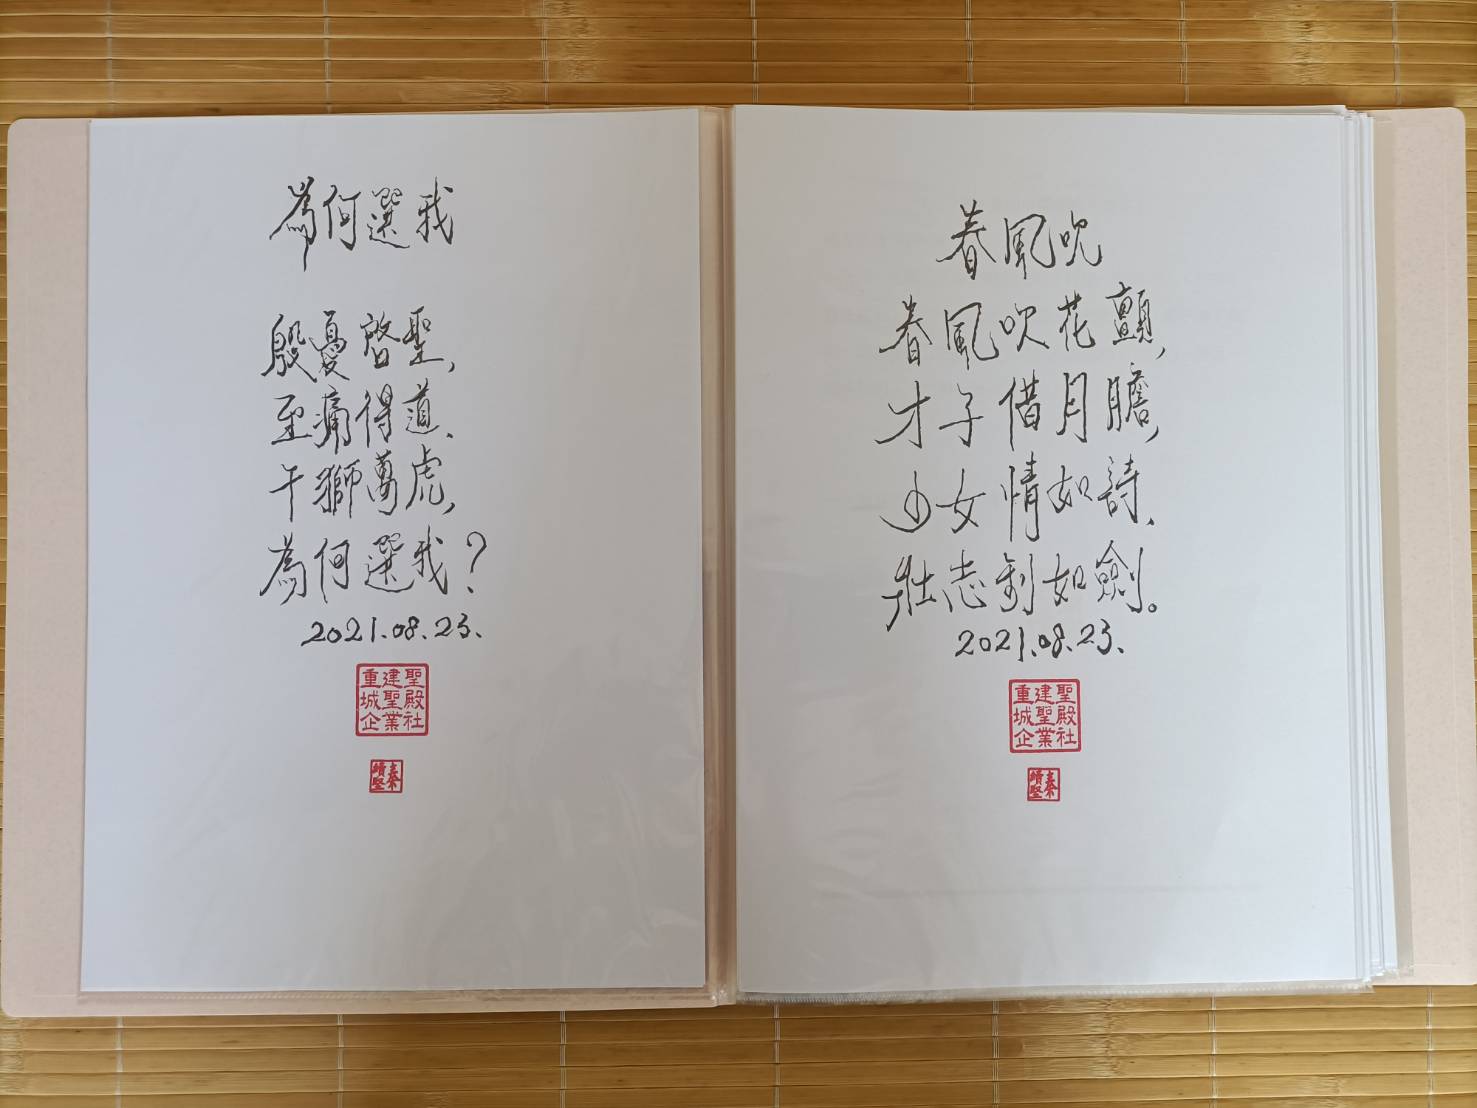 為何選我
殷憂啓聖,
至痛得道、
千獅萬虎,
為何選我?
2021.08.23.
聖殿社
建聖業
重城企
秦
續堅
春風吹
春風吹花顫,
才子借月膽,
少女情如詩、
壯志利如劍。
2021.08.23.
聖殿社
建聖業
重城企
秦
續堅